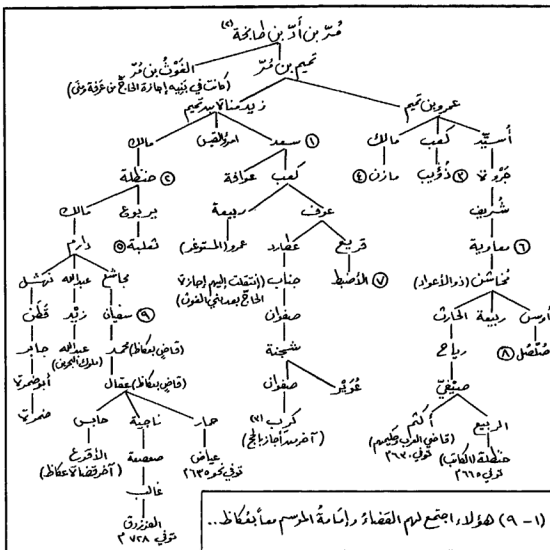 مُرّ بن أدّ بن طابخة (٢)
الغوْثُ بن مُرّ
تميم بن مُرّ
(كانت في بنيه إجازة الحاج من عرفة ومنى)
زيد مناة بن تميم
عمرو بن تميم
مالك
امرؤ القيس
سعد ①
مالك
كعب
أُسيِّد
② حنظلة
كعب
عوافة
④ مازن
③ ذُؤيب
جَرْوة
مالك
يربوع
ربيعة
عوف
شُريف
دارم
⑤ ثعلبة
عمرو (المستوغر)
عطارد
قريع
⑥ معاوية
نهشل
عبدالله
مجاشع
(انتقلت إليهم إجازة
الحاج بعد بني الغوث)
جناب
⑦ الأضبط
مُخاشن (ذو الأعواد)
قَطَن
زيْد
سفيان ⑨
صفوان
الحارث
ربيعة
أوس
جابر
عبدالله
(ملوك البحرين)
محمد (قاضٍ بعكاظ)
شجنة
رياح
⑧ صُلْصُل
أبو ضمرة
عقال (قاضٍ بعكاظ)
صفوان
عُوَيْر
صيْفيّ
ضمرة
حابس
ناجية
حمار
كرب (٣)
(آخر من أجاز بالحج)
أكثم
(قاضي العرب وحكيمهم)
توفي ٦٣٠م
الربيع
الأقرع
(آخر قضاة عكاظ)
صعصعة
عياض
توفي نحو ٦٣٥م
حنظلة (الكاتب)
توفي ٦٦٥م
غالب
الفرزدق
توفي ٧٢٨م
(١-٩) هؤلاء اجتمع لهم القضاء وإمامة الموسم معاً بعُكاظ..